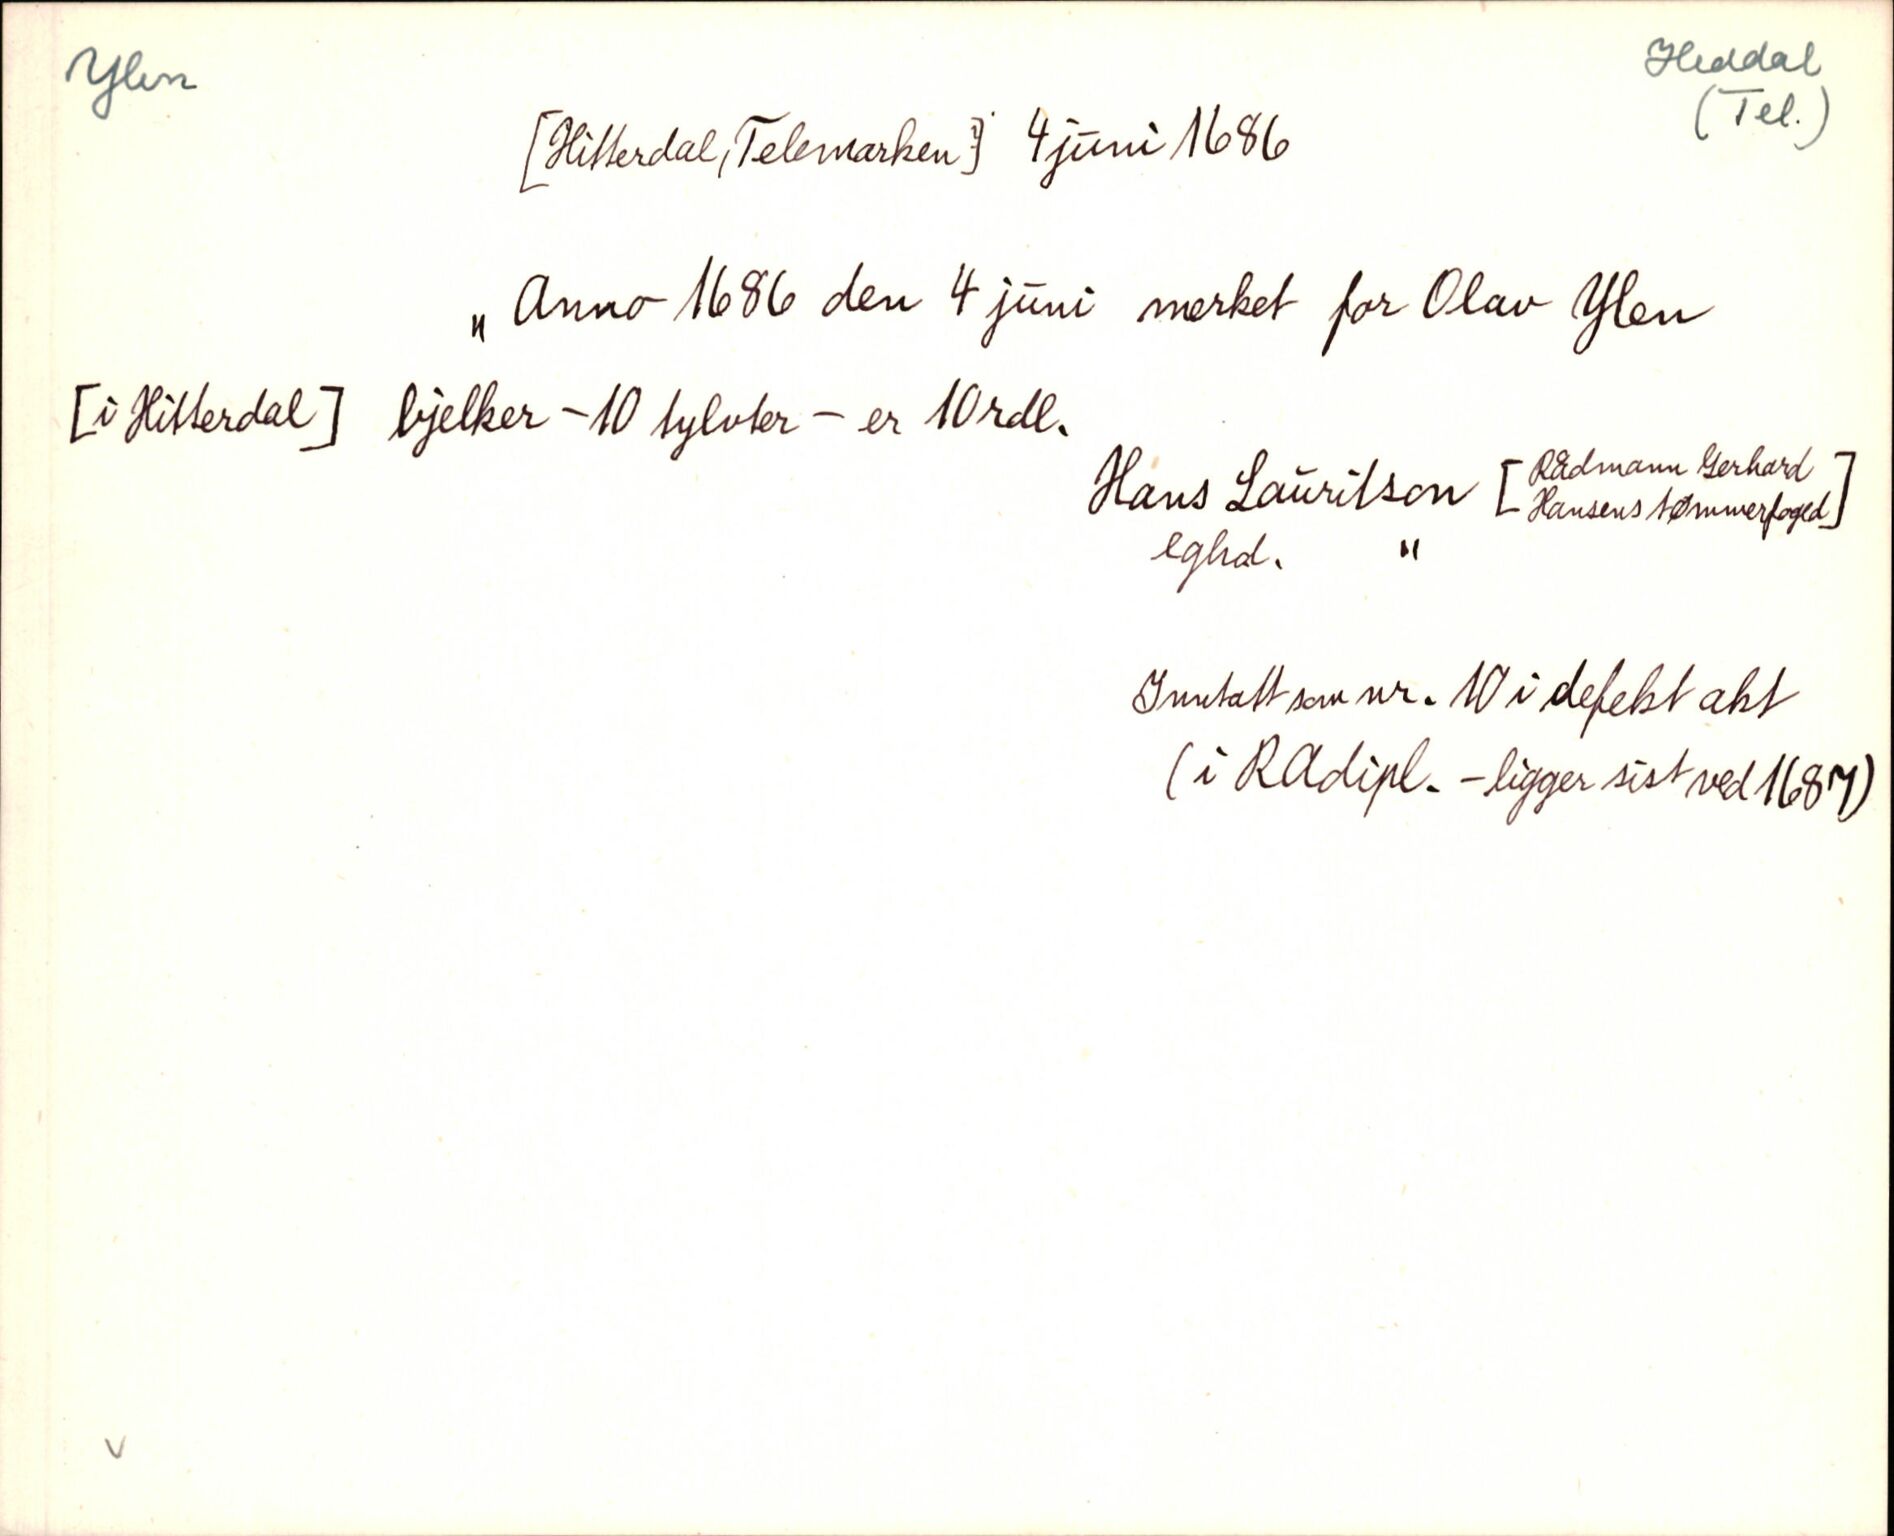 Ylen
Heddal
(Tel.)
[Hitterdal, Telemarken] 4 juni 1686
„ Anno 1686 den 4 juni merket for Olav Ylen
[i Hitterdal] bjelker – 10 tylvter – er 10 rdl.
Hans Lauritson [Rådmann Gerhard
Hansens tømmerfoged]
eghd. "
Inntatt som nr. 10 i defekt akt
(i RA dipl. – ligger sist ved 1687)
v